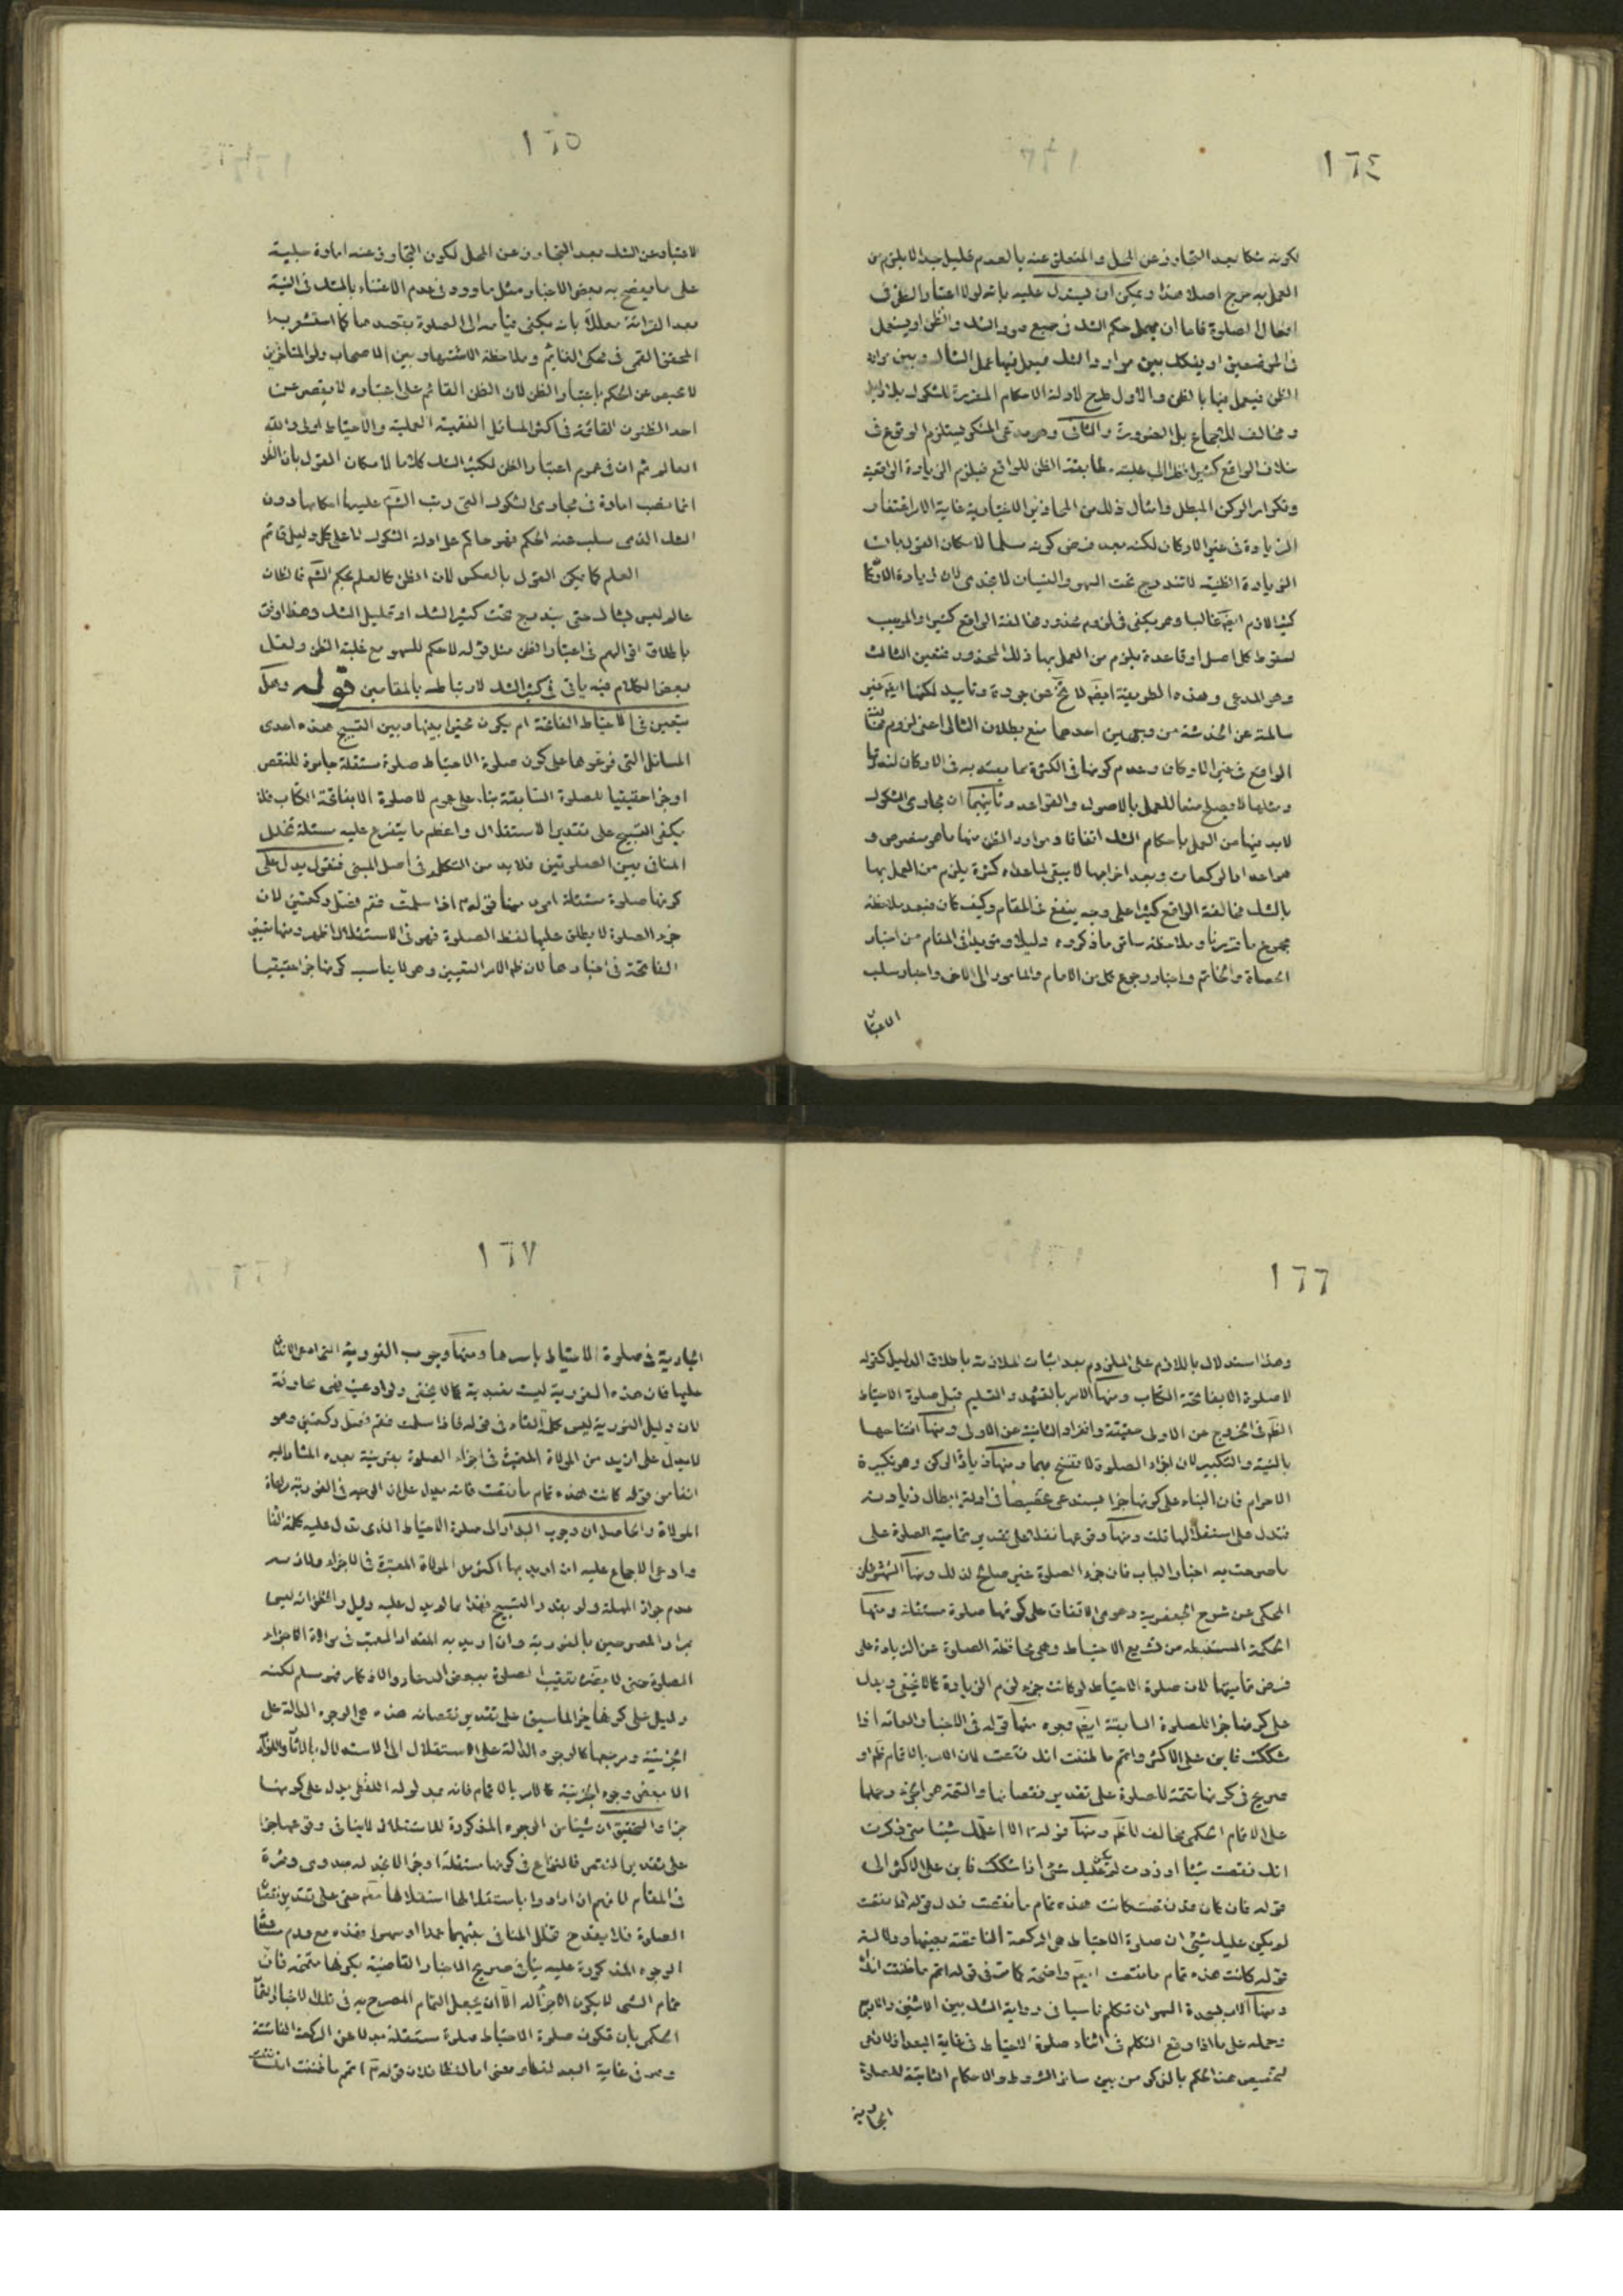 ١٦٤
لكونه شكا بعد التجاوز عن المحل والمتعلق عنه بالعدم قليل جدا لا يلزم من
العمل به حرج اصلا هذا ويمكن ان يستدل عليه بانه لولا اعتبار الظن في
افعال الصلوة فاما ان يعمل حكم الشك في جميع موارد الشك والظن او يعمل
في الموضعين او يفكك بين موارد الشك فيعمل فيها عمل الشاك وبين موارد
الظن فيعمل فيها بالظن والاول طرح لادلة الاحكام المقررة للشكوك بلا دليل
ومخالف للاجماع بل الضرورة والثاني وهو مدعى المنكر يستلزم الوقوع في
خلاف الواقع كثيرا نظرا الى غلبة مطابقة الظن للواقع فيلزم الزيادة الواقعية
وتكرار الركن المبطل وامثال ذلك من المحاذير الاختيارية غاية الامر اغتفار
الزيادة في غير الاركان لكنه بعد فرض كونه مسلما لامكان القول بان
الزيادة الظنية لا تندرج تحت السهو والنسيان لا يجدى لان زيادة الاركان
كثيرا لازم ايضا غالبا وهو يكفى في لزوم محذور مخالفة الواقع كثيرا والموجب
لسقوط كل اصل او قاعدة يلزم من العمل بها ذلك المحذور فتعين الثالث
وهو المدعى وهذه الطريقة ايضا لا تخ عن جودة وتاييد لكنها ايضا غير
سالمة عن الخدشة من وجهين احدهما منع بطلان التالى اعنى لزوم مخالفة
الواقع في غير الاركان وعدم كونها في الكثرة بما يعتد به في الاركان لندرتها
ومثلها لا يصلح منعا للعمل بالاصول والقواعد وثانيهما ان مجارى الشكوك
لابد فيها من العمل باحكام الشك اتفاقا وموارد الظن منها ما هو منصوص و
هو اعداد الركعات وبعد اخراجها لا يبقى لما عداه كثرة يلزم من العمل بها
بالشك مخالفة الواقع كثيرا على وجه ينفع في المقام وكيف كان فبعد ملاحظة
مجموع ما قررنا وملاحظة ساير ما ذكروه دليلا ومؤيدا في المقام من اخبار
الحصاة والخاتم واخبار رجوع كل من الامام والماموم الى الاخر واخبار سلب
الاعتبار
١٦٥
الاعتبار عن الشك بعد التجاوز عن المحل لكون التجاوز عنه امارة جلية
على ما يفصح به بعض الاخبار ومثل ما ورد في عدم الاعتناء بالشك في النية
بعد القرائة معللا بانه يكفى قيامه الى الصلوة بقصدها كما استشعر به
المحقق القمى في محكى الغنايم وملاحظة الاشتهار بين الاصحاب ولو المتاخرين
لا محيص عن الحكم باعتبار الظن لان الظن القائم على اعتباره لا يقصر عن
احد الظنون القائمة في اكثر المسائل الفقهية العملية والاحتياط اولى والله
العالم ثم ان في عموم اعتبار الظن لكثير الشك كلاما لامكان القول بان الظن
انما نصب امارة في مجارى الشكوك التى رتب الشرع عليها احكامها دون
الشك الذى سلب عنه الحكم فهو حاكم على ادلة الشكوك لا على كل دليل قائم
العلم كما يمكن القول بالعكس لان الظن كالعلم بحكم الشرع فالظان
عالم ليس بشاك حتى يندرج تحت كثير الشك او قليل الشك وهذا اوفق
باطلاق اقوالهم في اعتبار الظن مثل قوله لا حكم للسهو مع غلبة الظن ولعل
بعض الكلام فيه ياتى في كثير الشك لارتباطه بالمقامين قوله وهل
يتعين في الاحتياط الفاتحة ام يكون مخيرا بينها وبين التسبيح هذه احدى
المسائل التى فرعوها على كون صلوة الاحتياط صلوة مستقلة جابرة للنقص
او جزء حقيقيا للصلوة السابقة بناء على عموم لا صلوة الا بفاتحة الكتاب فلا
يكفى التسبيح على تقدير الاستقلال واعظم ما يتفرع عليه مسئلة تخلل
المنافى بين الصلوتين فلا بد من التكلم في اصل المبنى فنقول يدل على
كونها صلوة مستقلة امور منها قوله ع اذا سلمت فقم فصل ركعتين لان
جزء الصلوة لا يطلق عليها لفظ الصلوة فهو في الاستقلال اظهر ومنها تعيين
الفاتحة في اخبارها لان ظاهر الامر التعيين وهو لا يناسب كونها جزء حقيقيا
١٦٦
وهذا استدلال باللازم على الملزوم بعد اثبات الملازمة باطلاق الدليل كقوله
لا صلوة الا بفاتحة الكتاب ومنها الامر بالتشهد والتسليم قبل صلوة الاحتياط
الظاهر في الخروج عن الاولى حقيقة وانفراد الثانية عن الاولى ومنها افتتاحها
بالنية والتكبير لان اجزاء الصلوة لا تفتتح بهما ومنها زيادة الركن وهو تكبيرة
الاحرام فان البناء على كونها جزء يستدعى تخصيصا في ادلة ابطال زيادته
فتدل على استقلالها تلك ومنها وقوعها نفلا على تقدير تمامية الصلوة على
ما صرحت به اخبار الباب فان جزء الصلوة غير صالح لذلك ومنها
المحكى عن شرح الجعفرية دعوى الاتفاق على كونها صلوة مستقلة ومنها
الحكمة المستنبطه من تشريع الاحتياط وهى محافظة الصلوة عن الزيادة على
فرض تماميتها لان صلوة الاحتياط لو كانت جزء لزم الزيادة كما لا يخفى ويدل
على كونها جزء للصلوة السابقة ايضا وجوه منها قوله في الاخبار العامة اذا
شككت فابن على الاكثر واتم ما ظننت انك نقصت لان الامر بالاتمام ظاهر او
صريح في كونها تتمة للصلوة على تقدير نقصانها والتتمة هو الجزء وحملها
على الاتمام الحكمى مخالف للظاهر ومنها قوله ع الا اعلمك شيئا متى ذكرت
انك نقصت شيئا او زدت لم يكن عليك شئ اذا شككت فابن على الاكثر الى
قوله فان كان قد نقصت كانت هذه تمام ما نقصت فدل قوله اذا نقصت
لم يكن عليك شئ ان صلوة الاحتياط هى الركعة الناقصة بعينها ودلالة
قوله كانت هذه تمام ما نقصت ايضا واضحة كما في قوله اتم ما ظننت انك
ومنها الامر بسجدة السهو ان تكلم ناسيا في رواية الشك بين الاثنين والاربع
وحمله على ما اذا وقع التكلم في اثناء صلوة الاحتياط في غاية البعد اذ لا داعى
لتخصيص هذا الحكم بالذكر من بين سائر الشروط والاحكام الثابتة للصلوة
الجارية
١٦٧
الجارية في صلوة الاحتياط باسرها ومنها وجوب الفورية
عليها فان هذه الفورية ليست تعبدية كما لا يخفى
لان دليل الفورية ليس كلمة الفاء في قوله فاذا سلمت فقم فصل ركعتين وهو
لا يدل على ازيد من الموالاة المعتبرة في اجزاء الصلوة بقرينة
انفا من قوله كانت هذه تمام ما نقصت فانه يدل على ان الوجه في الفورية رعاية
الموالاة والحاصل ان وجوب البدار الى صلوة الاحتياط الذى تدل عليه كلمة الفاء
وادعى الاجماع عليه ان اريد بها اكثر من الموالاة المعتبرة في الاجزاء
عدم جواز المهلة ولو بقدر التسبيح فهذا مما لم يدل عليه دليل والظاهر انه ليس
مراد المصرحين بالفورية وان اريد به المقدار المعتبر في موالاة الاجزاء
الصلوة حتى لا يضر تعقيب الصلوة ببعض الدعاء والاذكار فهو مسلم لكنه
دليل على كونها جزء لما سبق على تقدير نقصانه هذه هى الوجوه الدالة على
الجزئية ومرجعها كالوجوه الدالة على الاستقلال الى الاستدلال بالاثار واللوازم
الا بعض وجوه الجزئية كالامر بالاتمام فانه بمدلوله اللفظى يدل على كونها
جزء والتحقيق ان شيئا من الوجوه المذكورة للاستقلال لا ينافى وقوعها جزء
على تقدير النقص فالنزاع في كونها مستقلة او جزء لا نجد له جدوى وثمرة
في المقام لانهم ان ارادوا باستقلالها استقلالها حتى على تقدير نقص
الصلوة فلا يقدح تخلل المنافى بينهما عمدا او سهوا فهذه مع عدم
الوجوه المذكورة عليه ينافى صريح الاخبار القاضية بكونها متممة فان
تمام الشئ لا يكون الا جزء له الا ان يجعل التمام المصرح به في تلك الاخبار
الحكمى بان تكون صلوة الاحتياط صلوة مستقلة بدلا عن الركعة الفائتة
وهو في غاية البعد لفظا ومعنى اما لفظا فلان قوله ع اتم ما ظننت انك نقصت